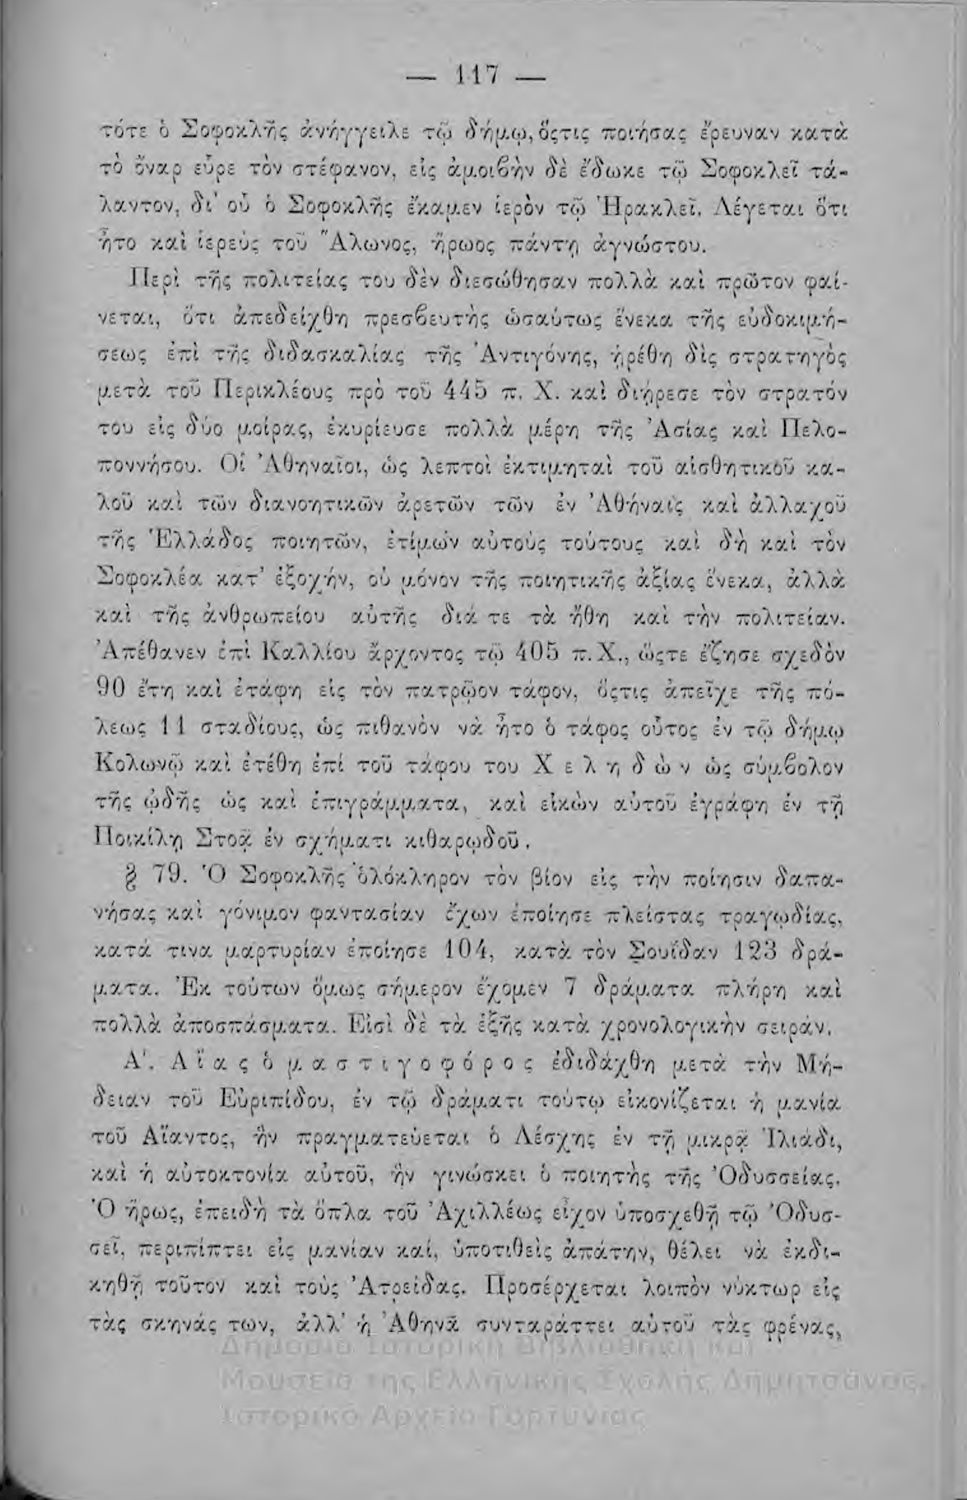 — 117 —
τότε ὁ Σοφοκλῆς ἀνήγγειλε τῷ δήμῳ, ὅςτις ποιήσας ἔρευναν κατὰ
τὸ ὄναρ εὗρε τὸν στέφανον, εἰς ἀμοιβὴν δὲ ἔδωκε τῷ Σοφοκλεῖ τά-
λαντον, δι' οὗ ὁ Σοφοκλῆς ἔκαμεν ἱερὸν τῷ Ἡρακλεῖ. Λέγεται ὅτι
ἦτο καὶ ἱερεὺς τοῦ Ἅλωνος, ἥρωος πάντῃ ἀγνώστου.
Περὶ τῆς πολιτείας του δὲν διεσώθησαν πολλὰ καὶ πρῶτον φαί-
νεται, ὅτι ἀπεδείχθη πρεσβευτὴς ὡσαύτως ἕνεκα τῆς εὐδοκιμή-
σεως ἐπὶ τῆς διδασκαλίας τῆς Ἀντιγόνης, ᾑρέθη δὶς στρατηγὸς
μετὰ τοῦ Περικλέους πρὸ τοῦ 445 π. Χ. καὶ διῄρεσε τὸν στρατόν
του εἰς δύο μοίρας, ἐκυρίευσε πολλὰ μέρη τῆς Ἀσίας καὶ Πελο-
ποννήσου. Οἱ Ἀθηναῖοι, ὡς λεπτοὶ ἐκτιμηταὶ τοῦ αἰσθητικοῦ κα-
λοῦ καὶ τῶν διανοητικῶν ἀρετῶν τῶν ἐν Ἀθήναις καὶ ἀλλαχοῦ
τῆς Ἑλλάδος ποιητῶν, ἐτίμων αὐτοὺς τούτους καὶ δὴ καὶ τὸν
Σοφοκλέα κατ' ἐξοχήν, οὐ μόνον τῆς ποιητικῆς ἀξίας ἕνεκα, ἀλλὰ
καὶ τῆς ἀνθρωπείου αὐτῆς διά τε τὰ ἤθη καὶ τὴν πολιτείαν.
Ἀπέθανεν ἐπὶ Καλλίου ἄρχοντος τῷ 405 π.Χ., ὥςτε ἔζησε σχεδὸν
90 ἔτη καὶ ἐτάφη εἰς τὸν πατρῷον τάφον, ὅςτις ἀπεῖχε τῆς πό-
λεως 11 σταδίους, ὡς πιθανὸν νὰ ἦτο ὁ τάφος οὗτος ἐν τῷ δήμῳ
Κολωνῷ καὶ ἐτέθη ἐπὶ τοῦ τάφου του Χ ε λ η δ ὼ ν ὡς σύμβολον
τῆς ᾠδῆς ὡς καὶ ἐπιγράμματα, καὶ εἰκὼν αὐτοῦ ἐγράφη ἐν τῇ
Ποικίλῃ Στοᾷ ἐν σχήματι κιθαρῳδοῦ.
§ 79. Ὁ Σοφοκλῆς ὁλόκληρον τὸν βίον εἰς τὴν ποίησιν δαπα-
νήσας καὶ γόνιμον φαντασίαν ἔχων ἐποίησε πλείστας τραγῳδίας,
κατά τινα μαρτυρίαν ἐποίησε 104, κατὰ τὸν Σουΐδαν 123 δρά-
ματα. Ἐκ τούτων ὅμως σήμερον ἔχομεν 7 δράματα πλήρη καὶ
πολλὰ ἀποσπάσματα. Εἰσὶ δὲ τὰ ἑξῆς κατὰ χρονολογικὴν σειράν.
Α'. Α ἴ α ς ὁ μ α σ τ ι γ ο φ ό ρ ο ς ἐδιδάχθη μετὰ τὴν Μή-
δειαν τοῦ Εὐριπίδου, ἐν τῷ δράματι τούτῳ εἰκονίζεται ἡ μανία
τοῦ Αἴαντος, ἣν πραγματεύεται ὁ Λέσχης ἐν τῇ μικρᾷ Ἰλιάδι,
καὶ ἡ αὐτοκτονία αὐτοῦ, ἣν γινώσκει ὁ ποιητὴς τῆς Ὀδυσσείας.
Ὁ ἥρως, ἐπειδὴ τὰ ὅπλα τοῦ Ἀχιλλέως εἶχον ὑποσχεθῆ τῷ Ὀδυσ-
σεῖ, περιπίπτει εἰς μανίαν καί, ὑποτιθεὶς ἀπάτην, θέλει νὰ ἐκδι-
κηθῇ τοῦτον καὶ τοὺς Ἀτρείδας. Προσέρχεται λοιπὸν νύκτωρ εἰς
τὰς σκηνάς των, ἀλλ' ἡ Ἀθηνᾶ συνταράττει αὐτοῦ τὰς φρένας,
Δημόσια Ιστορική Βιβλιοθήκη και
Μουσείο της Ελληνικής Σχολής Δημητσάνας,
Ιστορικό Αρχείο Γορτυνίας